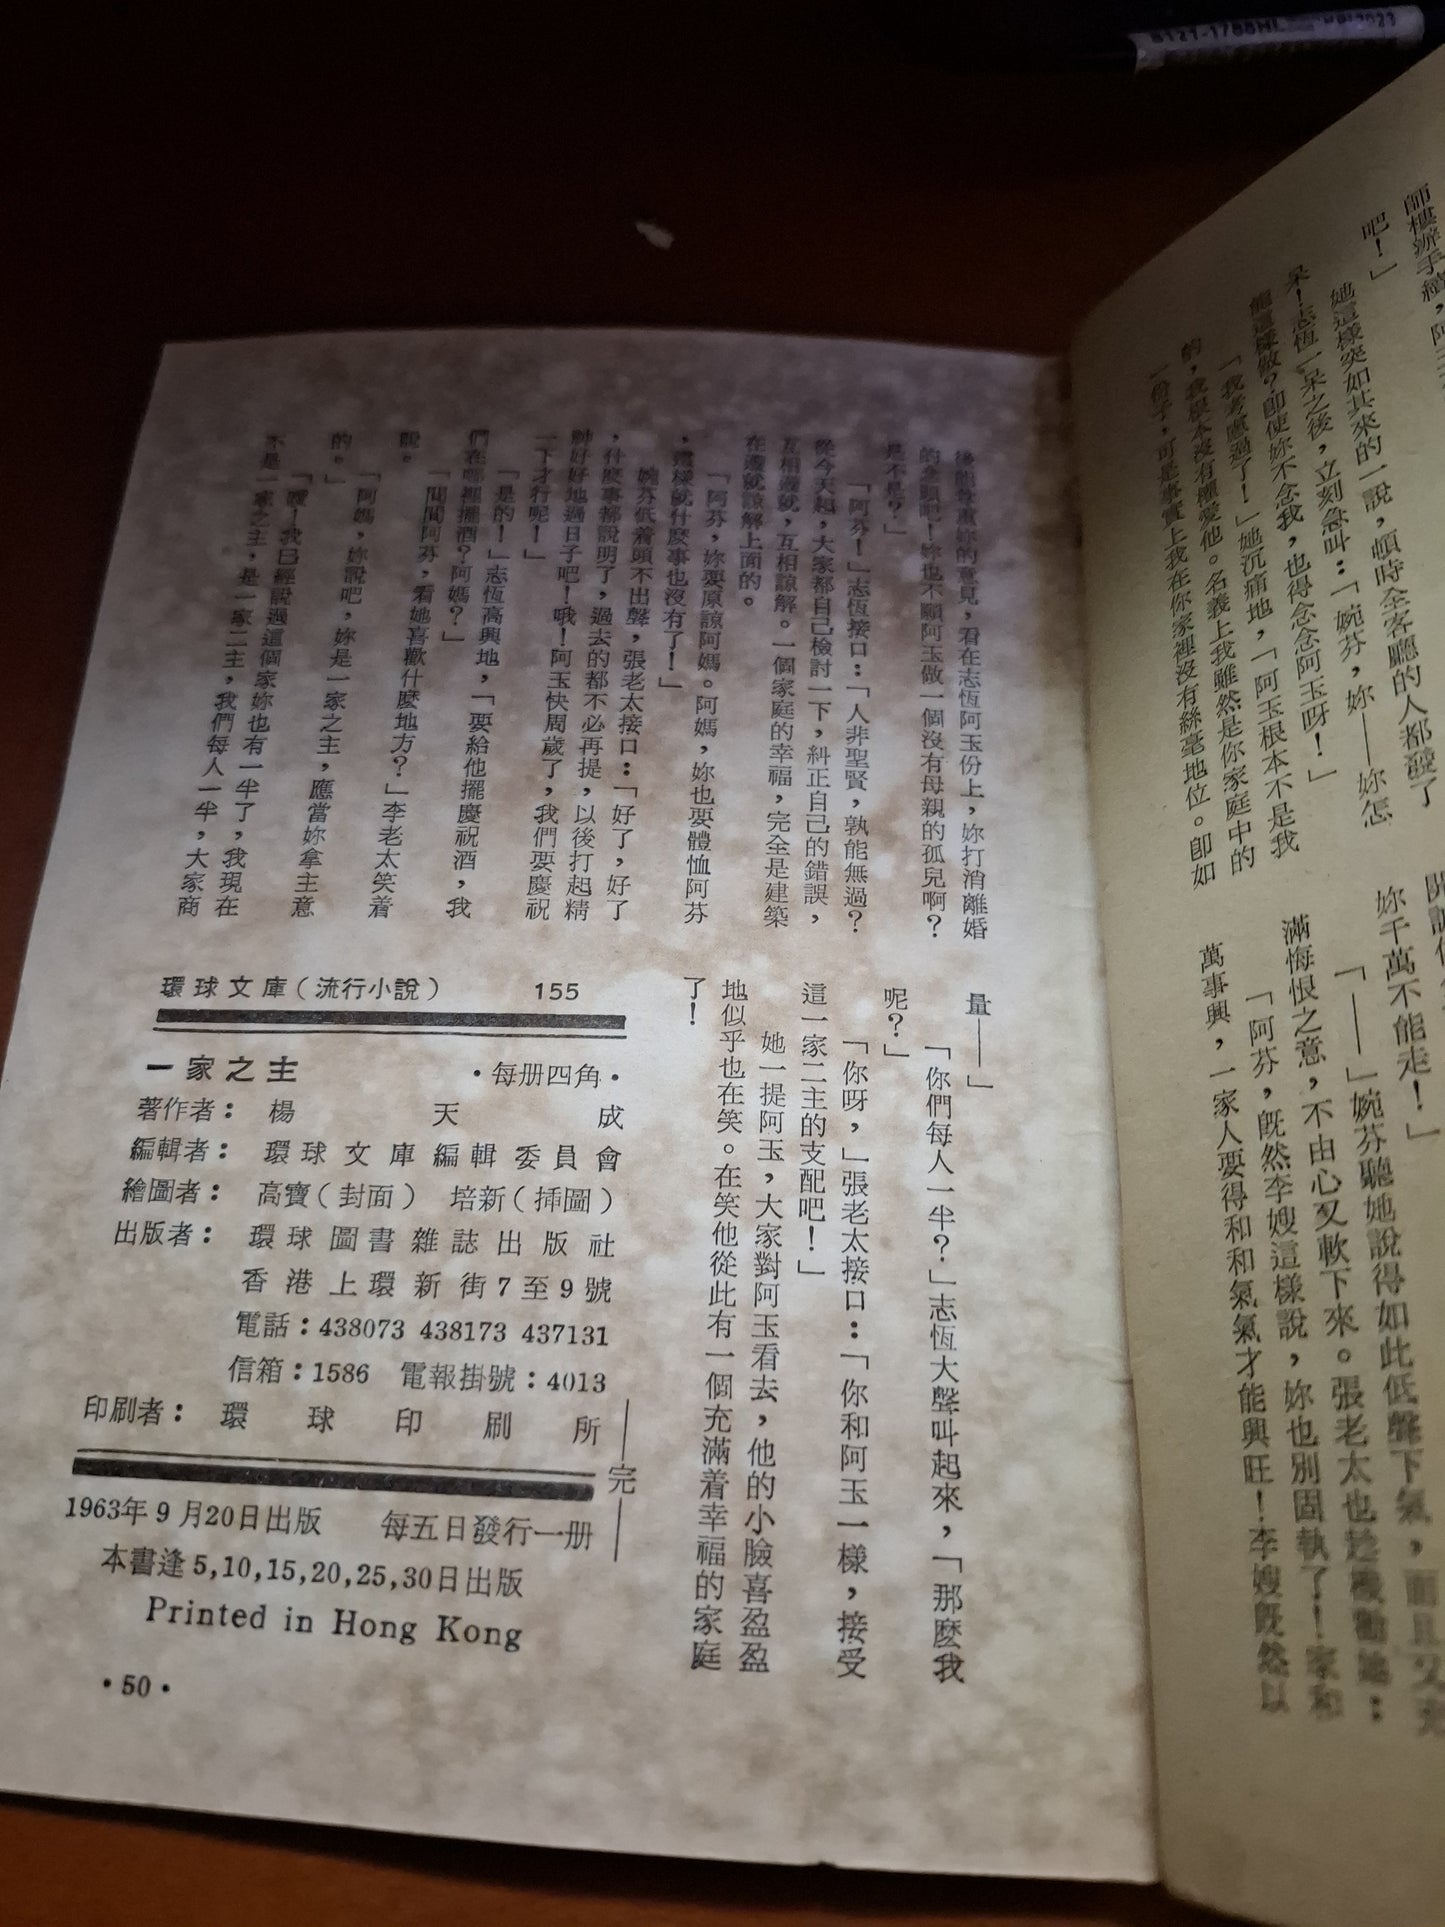 師樓辦手續，阿玉
吧！」
她這樣突如其來的一說，頓時全客廳的人都發了
呆！志恆一呆之後，立刻急叫：「婉芬，妳——妳怎
能這樣做？即使妳不念我，也得念念阿玉呀！」
「我考慮過了！」她沉痛地，「阿玉根本不是我
的，我根本沒有權愛他。名義上我雖然是你家庭中的
一份子，可是事實上我在你家裡沒有絲毫地位。卽如
妳千萬不能走！」
「——」婉芬聽她說得如此低聲下氣，而且又充
滿悔恨之意，不由心又軟下來。張老太也
「阿芬，旣然李嫂這樣說，妳也別固執了！家和
萬事興，一家人要得和和氣氣才能興旺！李嫂旣然以
後能尊重妳的意見，看在志恆阿玉份上，妳打消離婚
的念頭吧！妳也不願阿玉做一個沒有母親的孤兒啊？
是不是？」
「阿芬！」志恆接口：「人非聖賢，孰能無過？
從今天起，大家都自己檢討一下，糾正自己的錯誤，
互相遷就，互相諒解。一個家庭的幸福，完全是建築
在遷就諒解上面的。
「阿芬，妳要原諒阿媽。阿媽，妳也要體恤阿芬
，這樣就什麼事也沒有了！」
婉芬低着頭不出聲，張老太接口：「好了，好了
，什麼事都說明了，過去的都不必再提，以後打起精
神好好地過日子吧！哦！阿玉快周歲了，我們要慶祝
一下才行呢！」
「是的！」志恆高興地，「要給他擺慶祝酒，我
們在哪裡擺酒？阿媽？」
「問問阿芬，看她喜歡什麼地方？」李老太笑着
說。
「阿媽，妳說吧，妳是一家之主，應當妳拿主意
的。」
「噯！我已經說過這個家妳也有一半了，我現在
不是一家之主，是一家二主，我們每人一半，大家商
量——」
「你們每人一半？」志恆大聲叫起來，「那麼我
呢？」
「你呀，」張老太接口：「你和阿玉一樣，接受
這一家二主的支配吧！」
她一提阿玉，大家對阿玉看去，他的小臉喜盈盈
地似乎也在笑。在笑他從此有一個充滿着幸福的家庭
了！
——完——
環球文庫（流行小說） 155
一家之主 •每册四角•
著作者：楊天成
編輯者：環球文庫編輯委員會
繪圖者：高寶（封面） 培新（插圖）
出版者：環球圖書雜誌出版社
香港上環新街7至9號
電話：438073 438173 437131
信箱：1586 電報掛號：4013
印刷者：環球印刷所
1963年9月20日出版 每五日發行一册
本書逢5,10,15,20,25,30日出版
Printed in Hong Kong
•50•